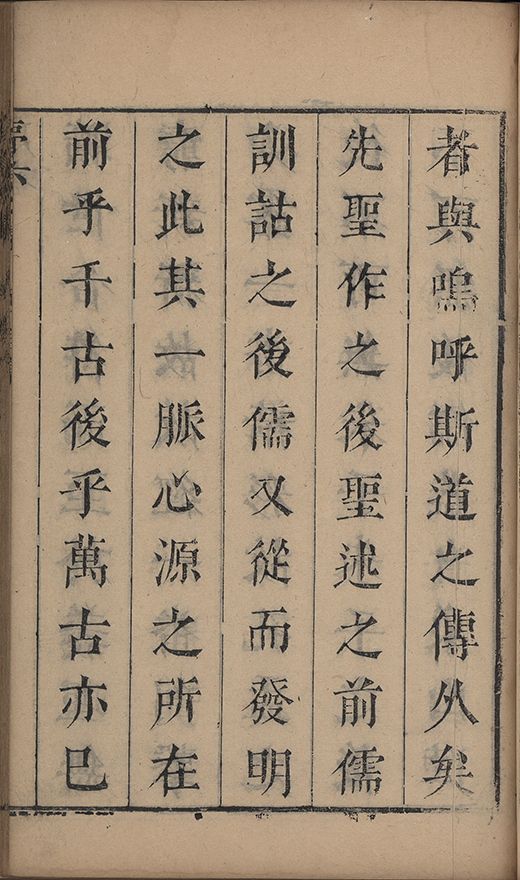 者與嗚呼斯道之傳久矣
先聖作之後聖述之前儒
訓詁之後儒又從而發明
之此其一脈心源之所在
前乎千古後乎萬古亦已
序六